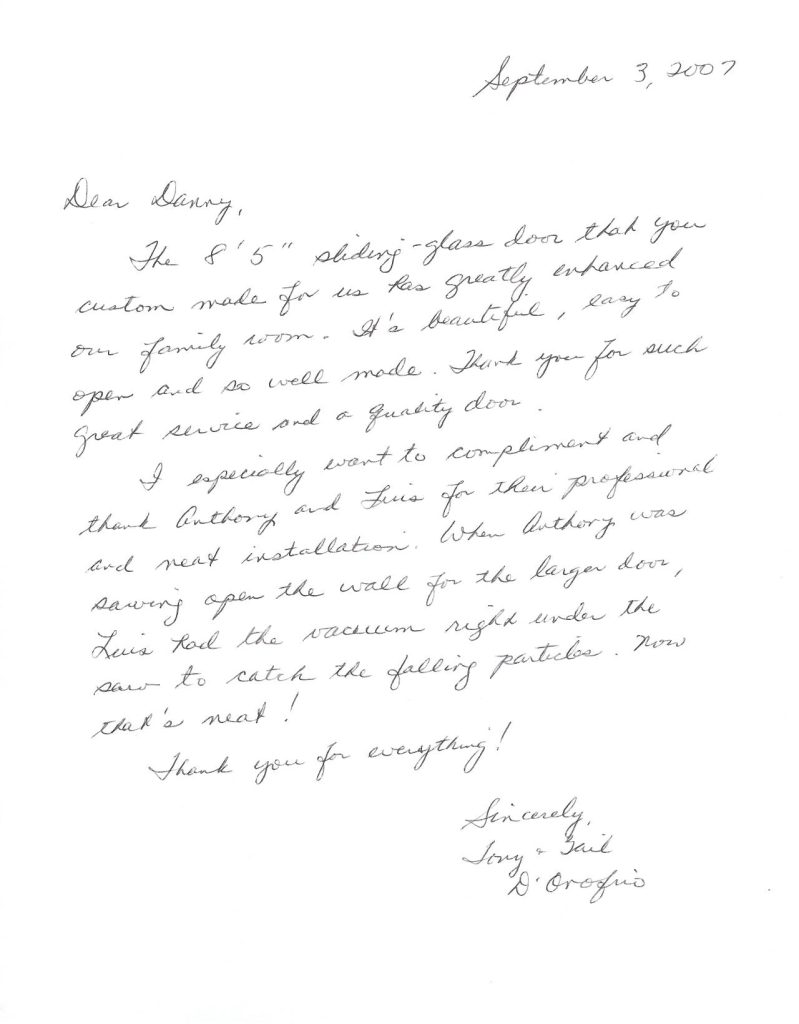 September 3, 2007
Dear Danny,
The 8'5" sliding-glass door that you
custom made for us has greatly enhanced
our family room. It's beautiful, easy to
open and so well made. Thank you for such
great service and a quality door.
I especially want to compliment and
thank Anthony and Luis for their professional
and neat installation. When Anthony was
sawing open the wall for the larger door,
Luis had the vacuum right under the
saw to catch the falling particles. Now
that's neat!
Thank you for everything!
Sincerely,
Tony & Gail
D'Orofrio